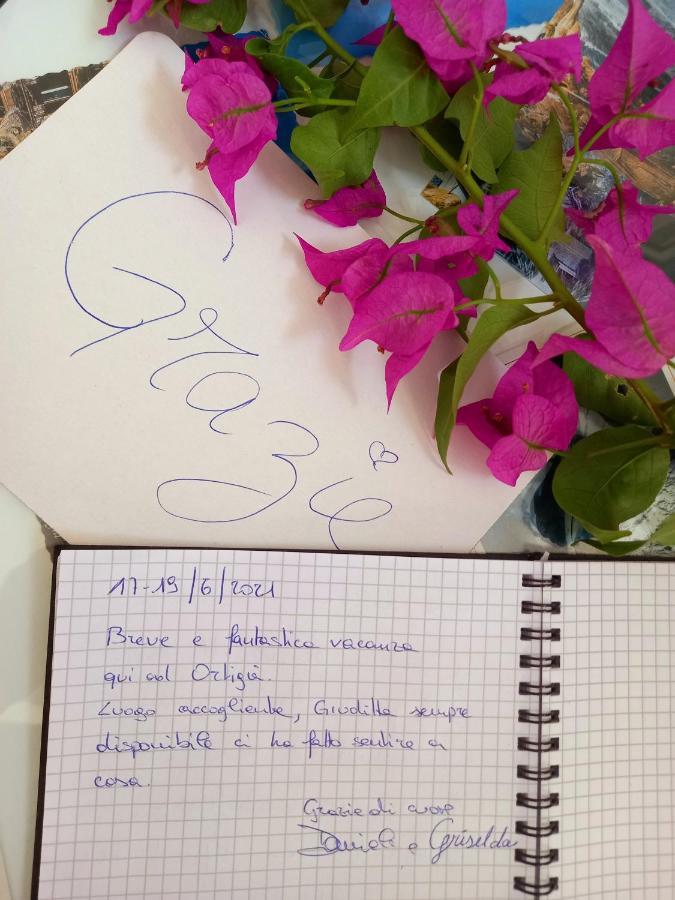 Grazie
17-19/6/2021
Breve e fantastica vacanza
qui ad Ortigia.
Luogo accogliente, Giuditta sempre
disponibile ci ha fatto sentire a
casa.
Grazie di cuore
Daniele e Griselda